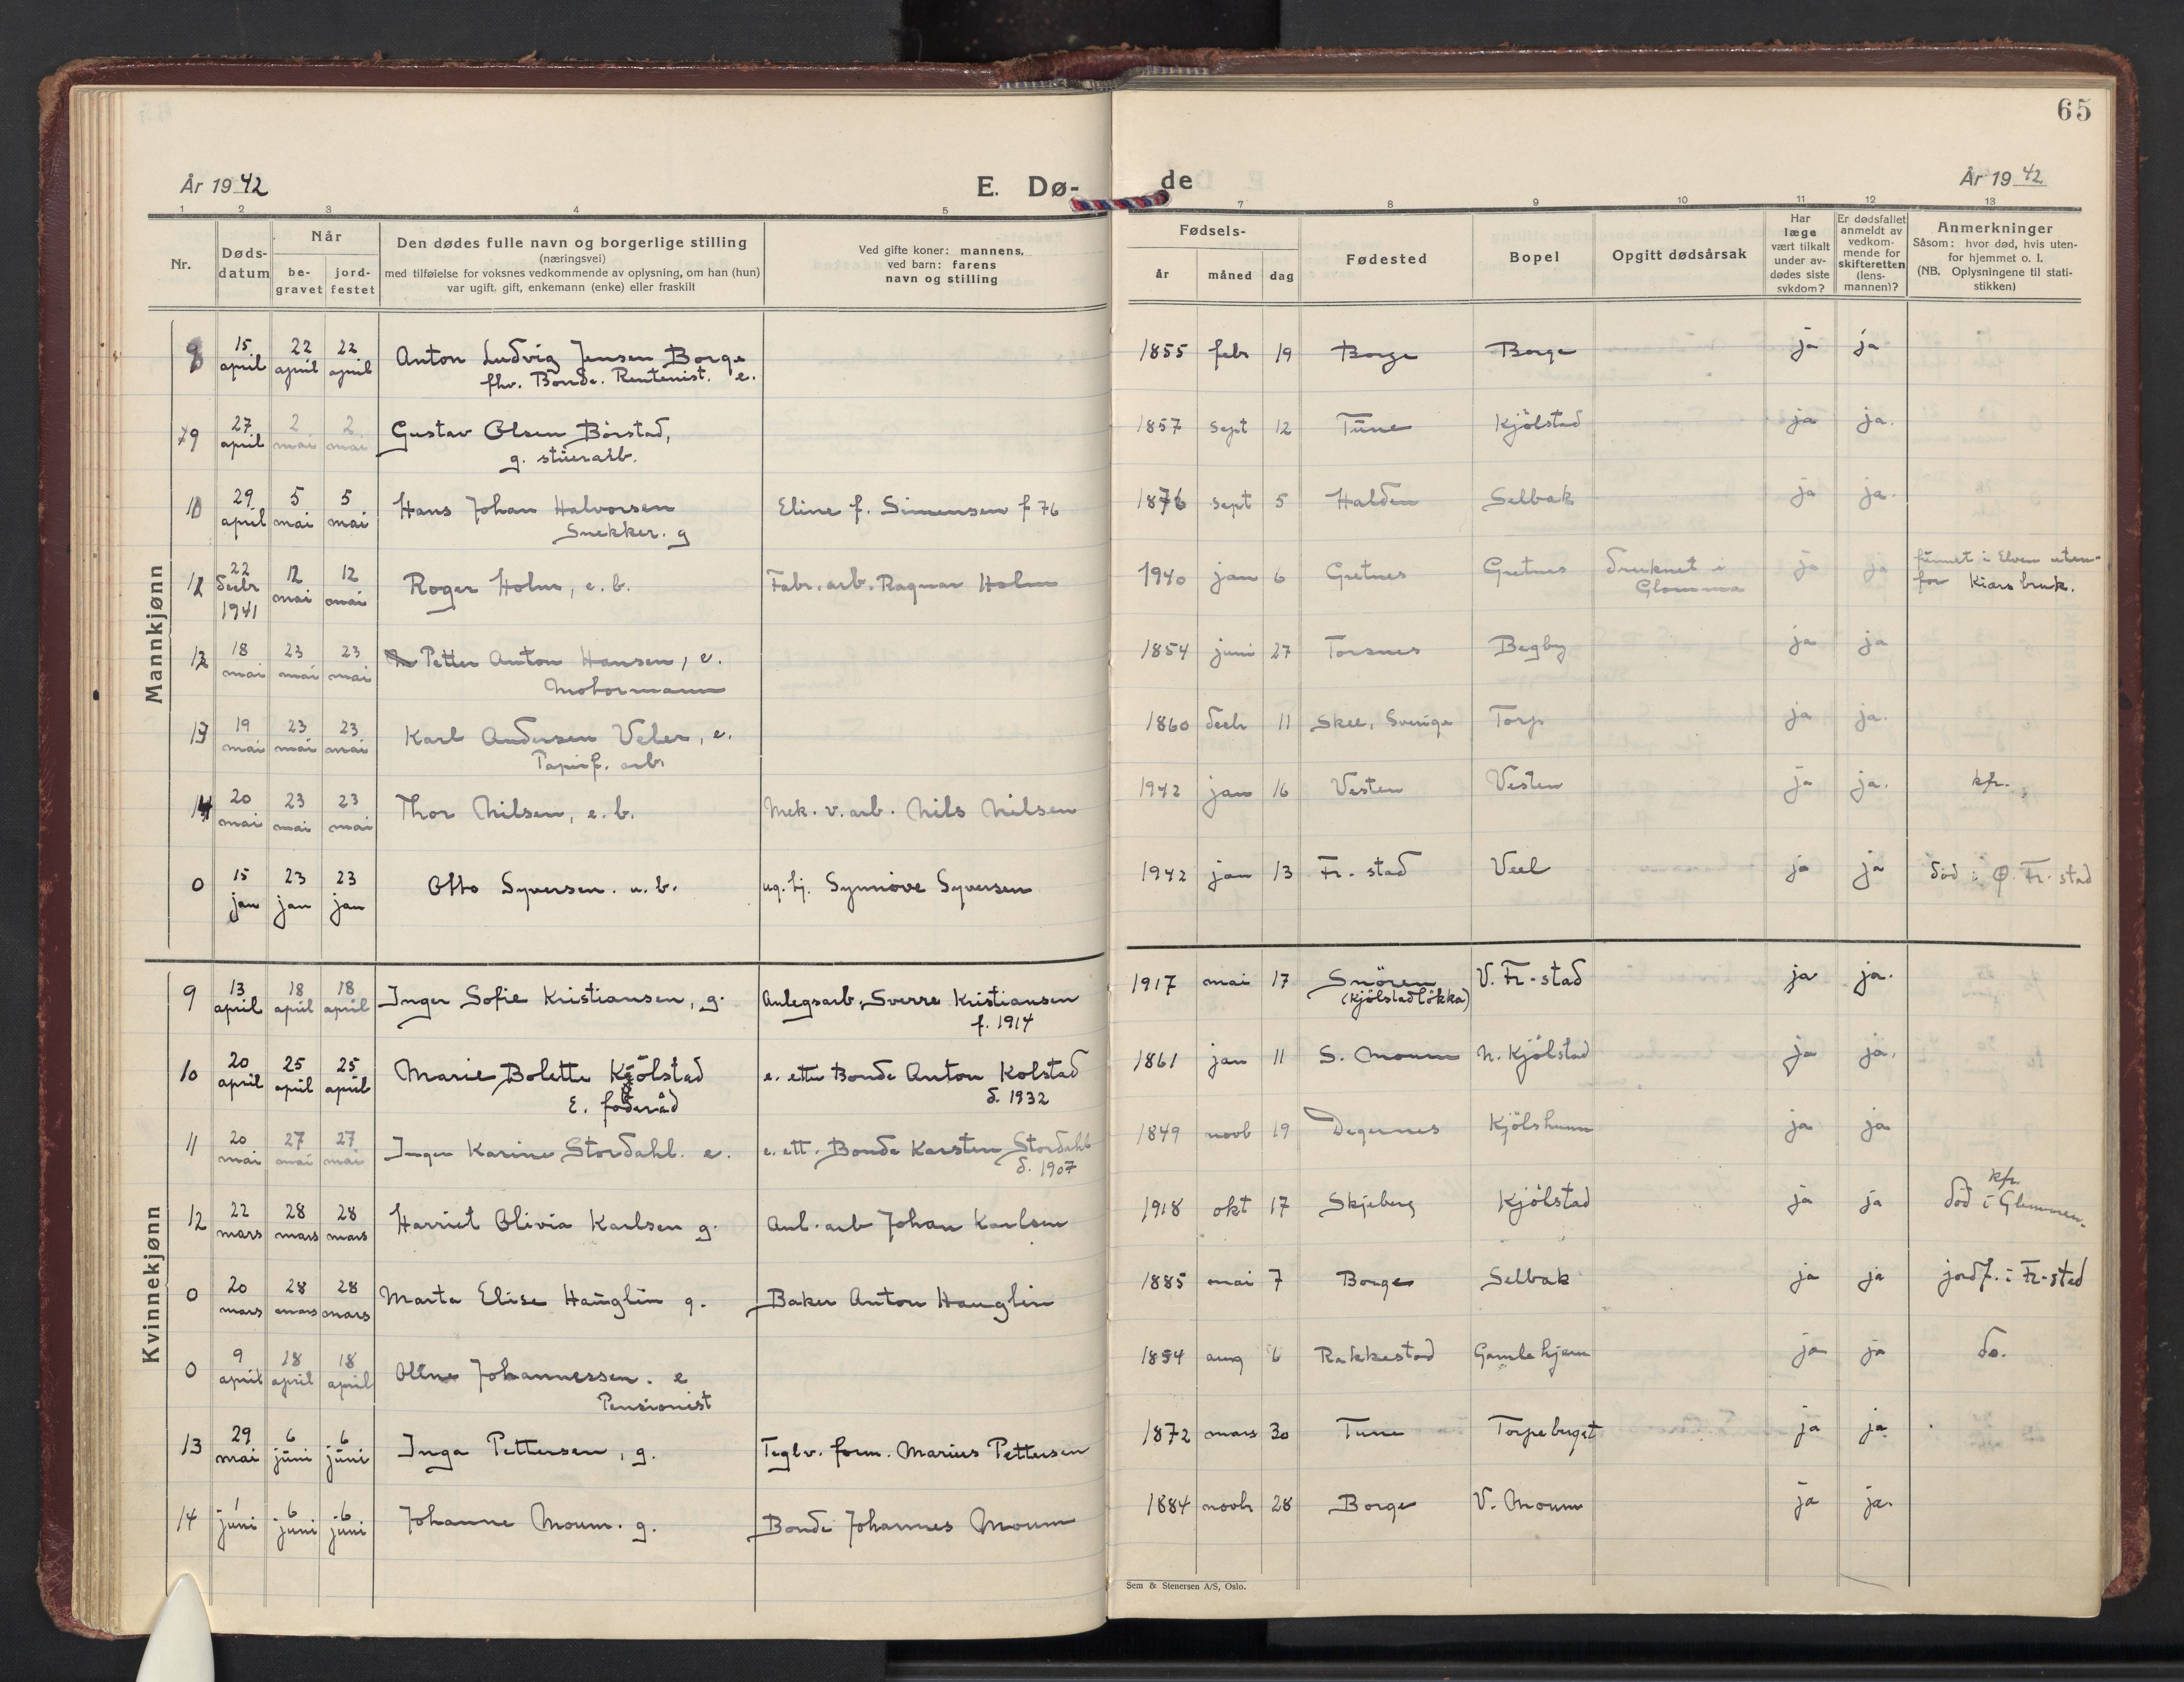 65
År 1942 E. Dø- de År 1942
1 2 3 4 5 7 8 9 10 11 12 13
Nr.
Døds-
datum
Når
be-
gravet
jord-
festet
Den dødes fulle navn og borgerlige stilling
(næringsvei)
med tilføielse for voksnes vedkommende av oplysning, om han (hun)
var ugift, gift, enkemann (enke) eller fraskilt
Ved gifte koner: mannens,
ved barn: farens
navn og stilling
Fødsels-
år måned dag
Fødested
Bopel
Opgitt dødsårsak
Har
læge
vært tilkalt
under av-
dødes siste
sykdom?
Er dødsfallet
anmeldt av
vedkom-
mende for
skifteretten
(lens-
mannen)?
Anmerkninger
Såsom: hvor død, hvis uten-
for hjemmet o. l.
(NB. Oplysningene til stati-
stikken)
Mannkjønn
8 15 april 22 april 22 april Anton Ludvig Jensen Borge 1855 febr 19 Borge Borge ja ja
fhv. Bonde. Rentenist. e.
9 27 april 2 mai 2 mai Gustav Olsen Börstad, 1857 sept 12 Tune Kjölstad ja ja.
g. stuerarb.
10 29 april 5 mai 5 mai Hans Johan Halvorsen Eline f. Simensen f 76 1876 sept 5 Halden Selbak ja ja.
Snekker. g
22 decbr 1941 12 mai 12 mai Roger Holm, e. b. Fabr. arb. Ragnar Holm 1940 jan 6 Gretnes Gretnes druknet i Glomma ja ja funnet i Elven uten-
for Kiærs bruk.
12 18 mai 23 mai 23 mai Petter Anton Hansen, e. 1854 juni 27 Torsnes Begby ja ja
Motormann
13 19 mai 23 mai 23 mai Karl Andersen Veler, e. 1860 decb 11 Skee, Sverige Torp ja ja.
Papirf. arb.
14 20 mai 23 mai 23 mai Thor Nilsen, e. b. Mek. v. arb. Nils Nilsen 1942 jan 16 Vesten Vesten ja ja. kfr.
0 15 jan 23 jan 23 jan Otto Syversen. u. b. ug. tj. Synnöve Syversen 1942 jan 13 Fr. stad Veel ja ja död i Ø. Fr. stad
Kvinnekjønn
9 13 april 18 april 18 april Inger Sofie Kristiansen, g. Anlegsarb. Sverre Kristiansen 1917 mai 17 Snören V. Fr-stad ja ja.
f. 1914 (Kjölstadlökka)
10 20 april 25 april 25 april Marie Bolette Kjölstad e. etter Bonde Anton Kolstad 1861 jan 11 S. Moum N. Kjölstad ja ja.
E. föderåd d. 1932
11 20 mai 27 mai 27 mai Inger Karine Stordahl. e. e. ett. Bonde Karsten Stordahl 1849 novb 19 Degernes Kjölshunn ja ja
d. 1907
12 22 mars 28 mars 28 mars Harriet Olivia Karlsen g. Anl. arb Johan Karlsen 1918 okt 17 Skjeberg Kjölstad ja ja kfr.
död i Glemmen.
0 20 mars 28 mars 28 mars Marta Elise Hauglin g. Baker Anton Hauglin 1885 mai 7 Borge Selbak ja ja jordf. i Fr-stad
0 9 april 18 april 18 april Johannessen. e 1854 aug 6 Rakkestad Gamlehjem ja ja do.
Pensionist
13 29 mai 6 juni 6 juni Inga Pettersen, g. Teglv. form. Marius Pettersen 1872 mars 30 Tune Torpeberget ja ja
14 1 juni 6 juni 6 juni Johanne Moum. g. Bonde Johannes Moum 1884 novb 28 Borge V. Moum ja ja.
Sem & Stenersen A/S, Oslo.